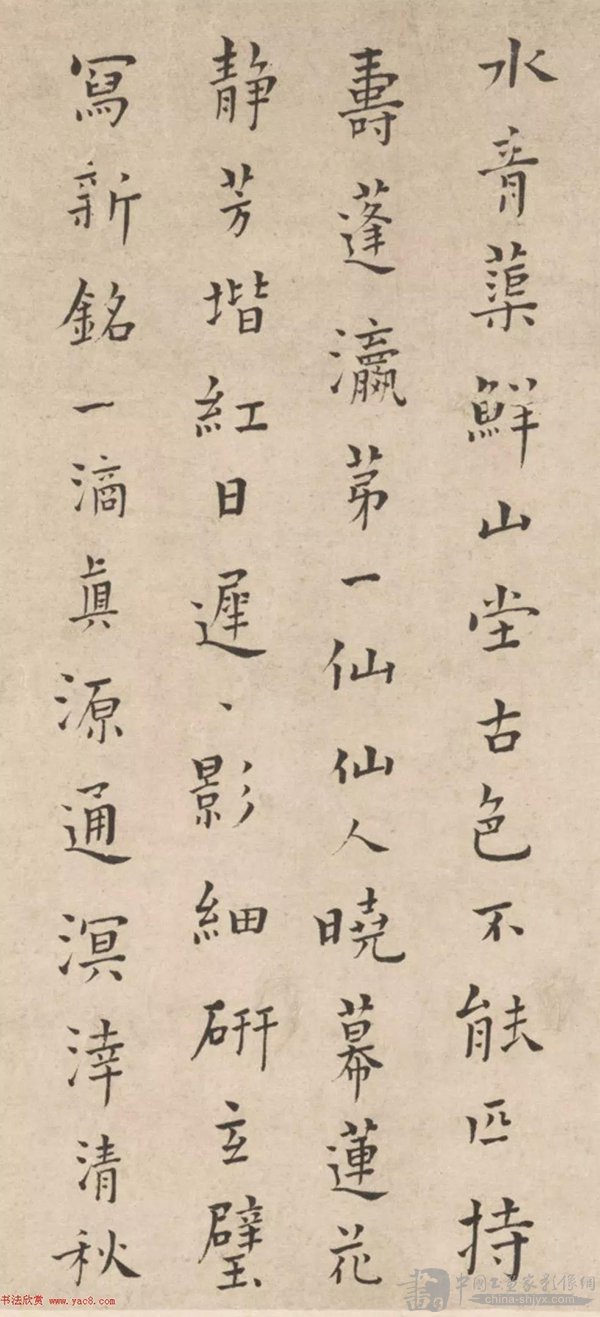 水青蕖鮮山堂古色不能匹持
壽蓬瀛苐一仙仙人曉幕蓮花
靜芳堦紅日遲、影細研玄璧
寫新銘一滴真源通溟涬清秋
书法欣赏 www.yac8.com
中國工筆家影像網
china-shjyx.com